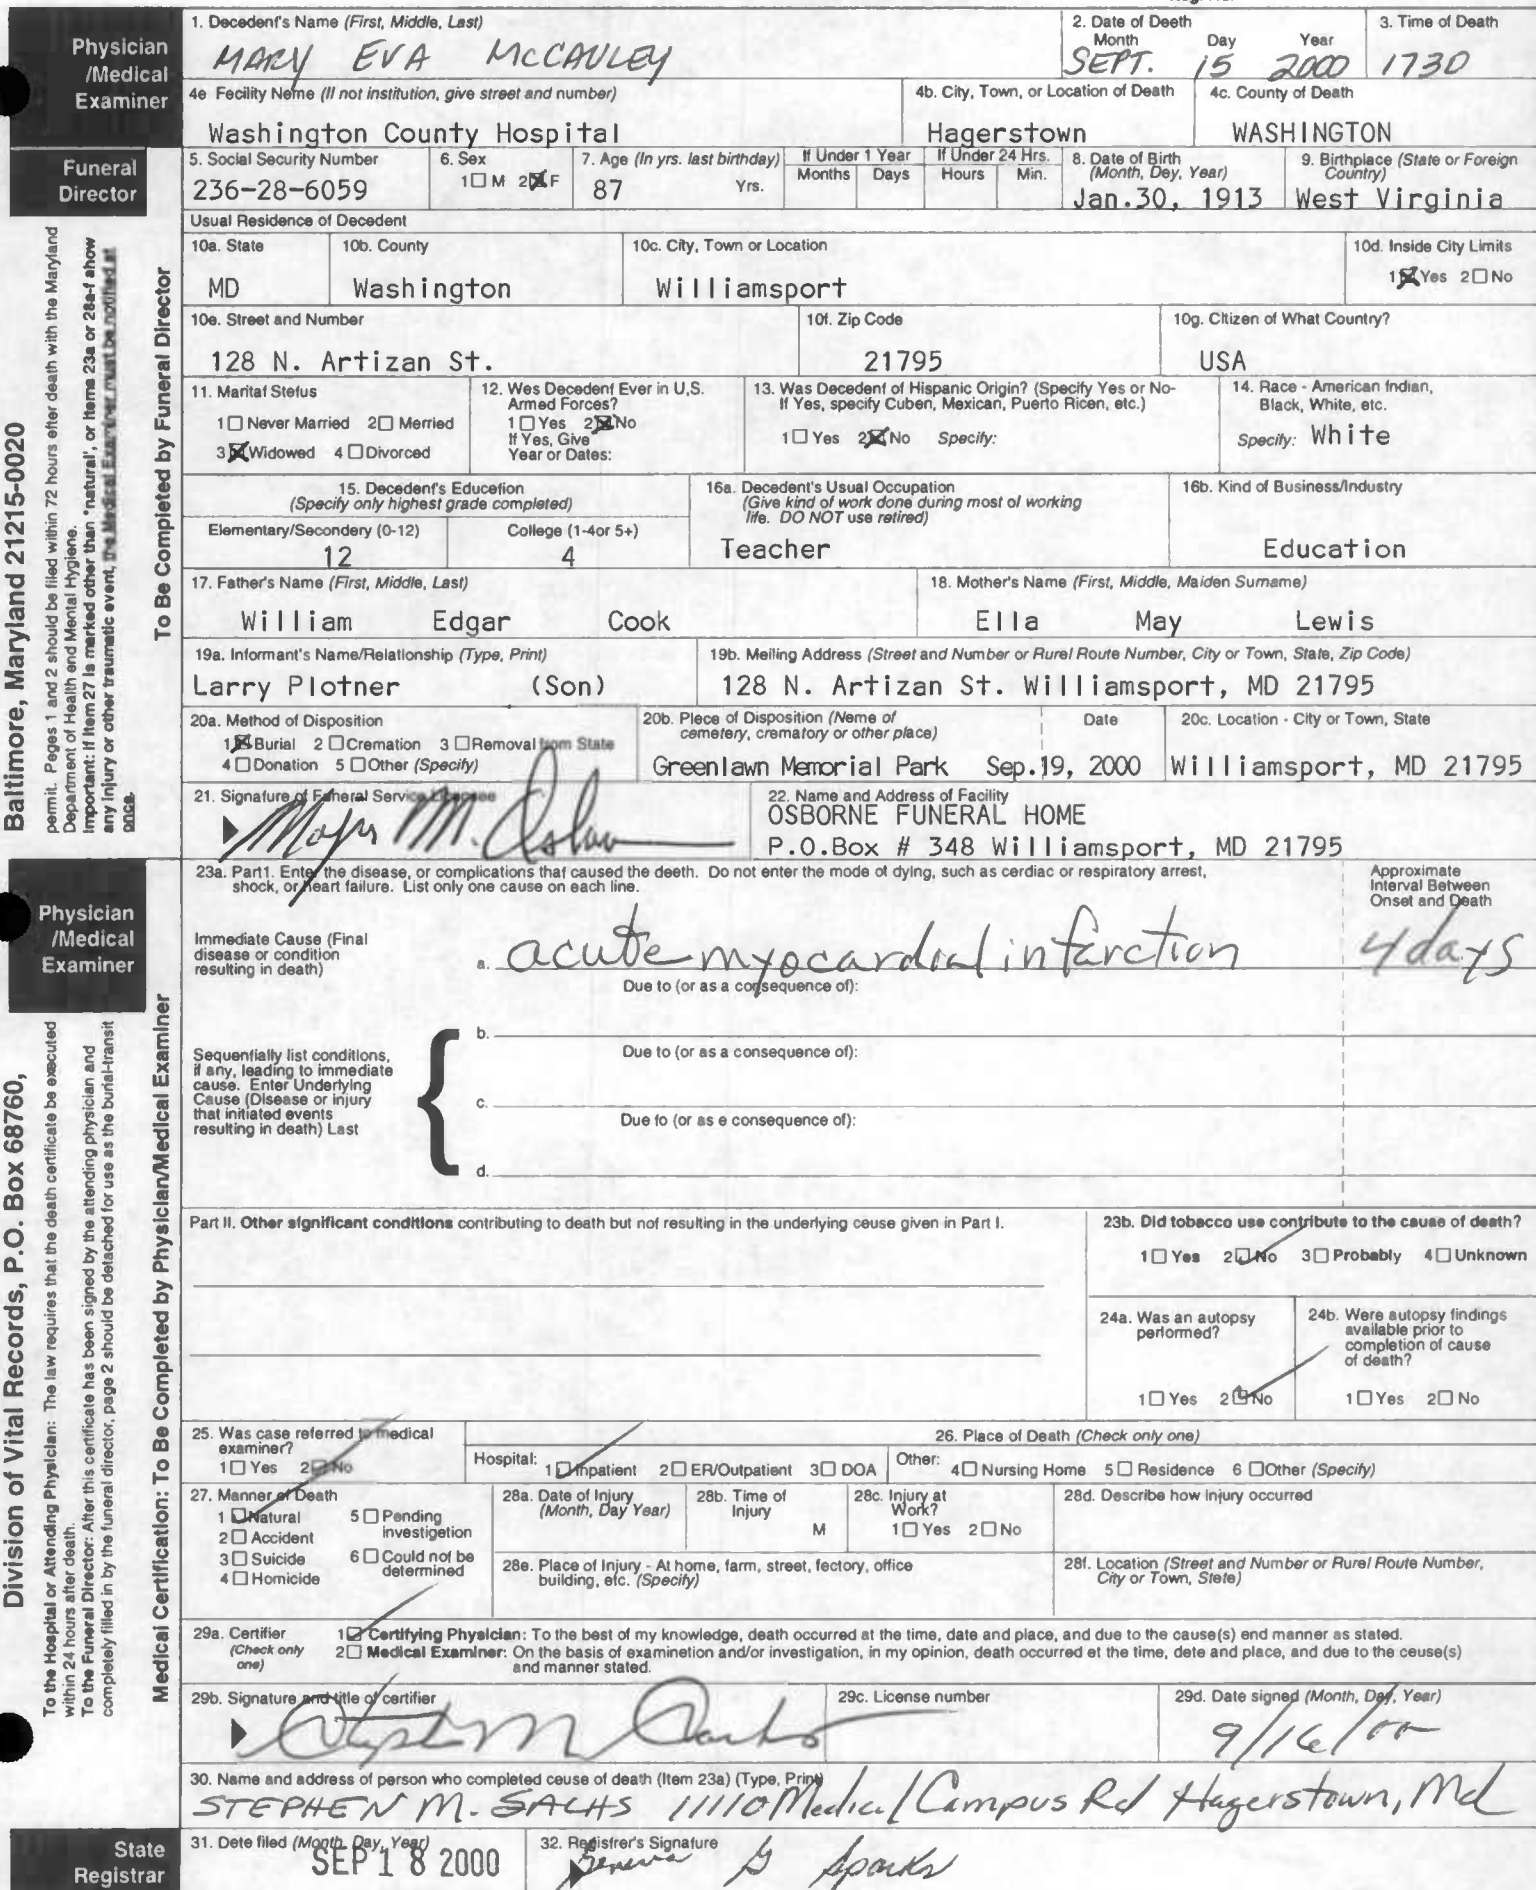 Physician
/Medical
Examiner
1. Decedent's Name (First, Middle, Last)
MARY EVA McCAULEY
2. Date of Deeth
Month Day Year
SEPT. 15 2000
3. Time of Death
1730
4e Fecility Neme (If not institution, give street and number)
Washington County Hospital
4b. City, Town, or Location of Death
Hagerstown
4c. County of Death
WASHINGTON
Funeral
Director
5. Social Security Number
236-28-6059
6. Sex
1☐ M 2☒ F
7. Age (In yrs. last birthday)
87 Yrs.
If Under 1 Year
Months Days
If Under 24 Hrs.
Hours Min.
8. Date of Birth
(Month, Dey, Year)
Jan.30, 1913
9. Birthplace (State or Foreign
Country)
West Virginia
Usual Residence of Decedent
10a. State
MD
10b. County
Washington
10c. City, Town or Location
Williamsport
10d. Inside City Limits
1☒Yes 2☐No
10e. Street and Number
128 N. Artizan St.
10f. Zip Code
21795
10g. Citizen of What Country?
USA
11. Marital Stefus
1☐ Never Married 2☐ Merried
3☒Widowed 4☐Divorced
12. Wes Decedent Ever in U,S.
Armed Forces?
1☐Yes 2☒No
If Yes, Give
Year or Dates:
13. Was Decedent of Hispanic Origin? (Specify Yes or No-
If Yes, specify Cuben, Mexican, Puerto Ricen, etc.)
1☐ Yes 2☒No Specify:
14. Race - American Indian,
Black, White, etc.
Specify: White
15. Decedent's Educefion
(Specify only highest grade completed)
Elementary/Secondery (0-12)
12
College (1-4or 5+)
4
16a. Decedent's Usual Occupation
(Give kind of work done during most of working
life. DO NOT use retired)
Teacher
16b. Kind of Business/Industry
Education
17. Father's Name (First, Middle, Last)
William Edgar Cook
18. Mother's Name (First, Middle, Maiden Surname)
Ella May Lewis
19a. Informant's Name/Relationship (Type, Print)
Larry Plotner (Son)
19b. Meiling Address (Street and Number or Rurel Route Number, City or Town, State, Zip Code)
128 N. Artizan St. Williamsport, MD 21795
20a. Method of Disposition
1☒Burial 2 ☐Cremation 3 ☐Removal from State
4☐Donation 5 ☐Other (Specify)
20b. Plece of Disposition (Neme of
cemetery, crematory or other place)
Date
Greenlawn Memorial Park Sep.19, 2000
20c. Location - City or Town, State
Williamsport, MD 21795
21. Signature of Funeral Service Licensee
M. Osborne
22. Name and Address of Facility
OSBORNE FUNERAL HOME
P.O.Box # 348 Williamsport, MD 21795
To Be Completed by Funeral Director
Baltimore, Maryland 21215-0020
permit. Peges 1 and 2 should be filed within 72 hours efter death with the Maryland
Department of Health end Mental Hygiene.
Important: If Item 27 is marked other than "natural', or items 23a or 28e-f show
any injury or other traumatic event, the Medical Examiner must be notified at
once.
Physician
/Medical
Examiner
23a. Part1. Enter the disease, or complications thaf caused the deeth. Do not enter the mode of dying, such as cerdiac or respiratory arrest,
shock, or heart failure. List only one cause on each line.
Approximate
Interval Between
Onset and Death
Immediate Cause (Final
disease or condition
resulting in death)
a. acute myocardial infarction 4 days
Due to (or as a consequence of):
b.
Due to (or as a consequence of):
Sequentially list conditions,
if any, leading to immediate
cause. Enter Underlying
Cause (Disease or injury
that initiated events
resulting in death) Last
c.
Due fo (or as e consequence of):
d.
Part II. Other significant conditions contributing to death but nof resulting in the underlying ceuse given in Part I.
23b. Did tobacco use contribute to the cause of death?
1☐ Yes 2☑No 3☐Probably 4☐Unknown
24a. Was an autopsy
performed?
1☐Yes 2☑No
24b. Were autopsy findings
available prior to
completion of cause
of death?
1☐Yes 2☐No
25. Was case referred to medical
examiner?
1☐Yes 2☑No
26. Place of Death (Check only one)
Hospital: 1☑Inpatient 2☐ER/Outpatient 3☐DOA Other: 4☐Nursing Home 5☐Residence 6 ☐Other (Specify)
27. Manner of Death
1☑Natural
2☐Accident
3☐Suicide
4☐Homicide
5☐Pending
investigetion
6☐Could nof be
determined
28a. Date of Injury
(Month, Day Year)
28b. Time of
Injury
M
28c. Injury at
Work?
1☐Yes 2☐No
28d. Describe how injury occurred
28e. Place of Injury - At home, farm, street, fectory, office
building, efc. (Specify)
28f. Location (Street and Number or Rurel Route Number,
City or Town, Stete)
29a. Certifier
(Check only
one)
1☑ Certifying Physician: To the best of my knowledge, death occurred at the time, date and place, and due to the cause(s) end manner as stated.
2☐ Medical Examiner: On the basis of examinetion and/or investigation, in my opinion, death occurred et the time, dete and place, and due to the ceuse(s)
and manner stated.
29b. Signature and title of certifier
Stephen M Sachs
29c. License number
29d. Date signed (Month, Day, Year)
9/16/00
30. Name and address of person who completed ceuse of death (Item 23a) (Type, Print)
STEPHEN M. SACHS 11110 Medical Campus Rd Hagerstown, Md
Medical Certification: To Be Completed by Physician/Medical Examiner
Division of Vital Records, P.O. Box 68760,
To the Hospital or Attending Physician: The law requires that the death certificate be executed
within 24 hours after death.
To the Funeral Director: After this certificate has been signed by the attending physician and
completely filled in by the funeral director, page 2 should be detached for use as the burial-transit
State
Registrar
31. Dete filed (Month, Day, Year)
SEP 18 2000
32. Registrer's Signature
Geneva G Sparks